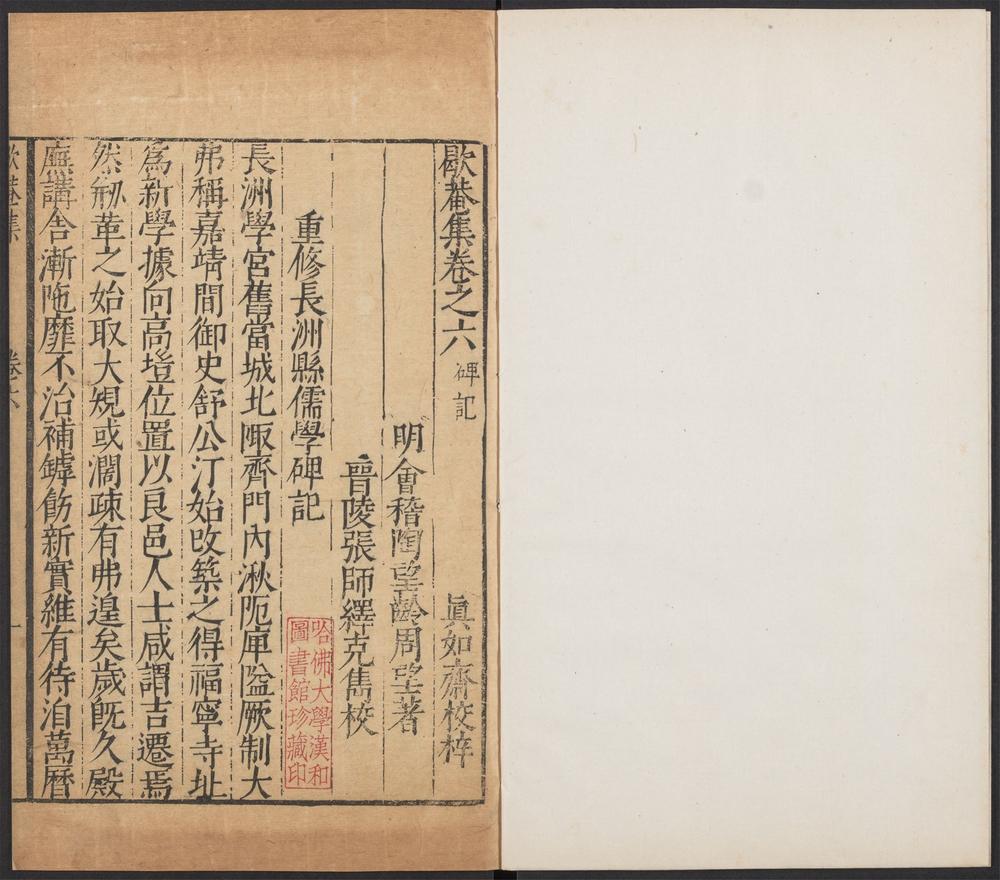 歇菴集卷之六 碑記 眞如齋校梓
明會稽陶望齡周望著
晉陵張師繹克雋校
重修長洲縣儒學碑記
長洲學宮舊當城北陬齊門內湫阨庳隘厥制大
弗稱嘉靖間御史舒公汀始改築之得福寧寺址
爲新學據向高塏位置以良邑人士咸謂吉遷焉
然刱革之始取大䂓或濶疎有弗遑矣歲旣久殿
廡講舍漸陁靡不治補罅飭新實維有待洎萬曆
歇菴集 卷六 一
哈佛大學漢和
圖書館珍藏印